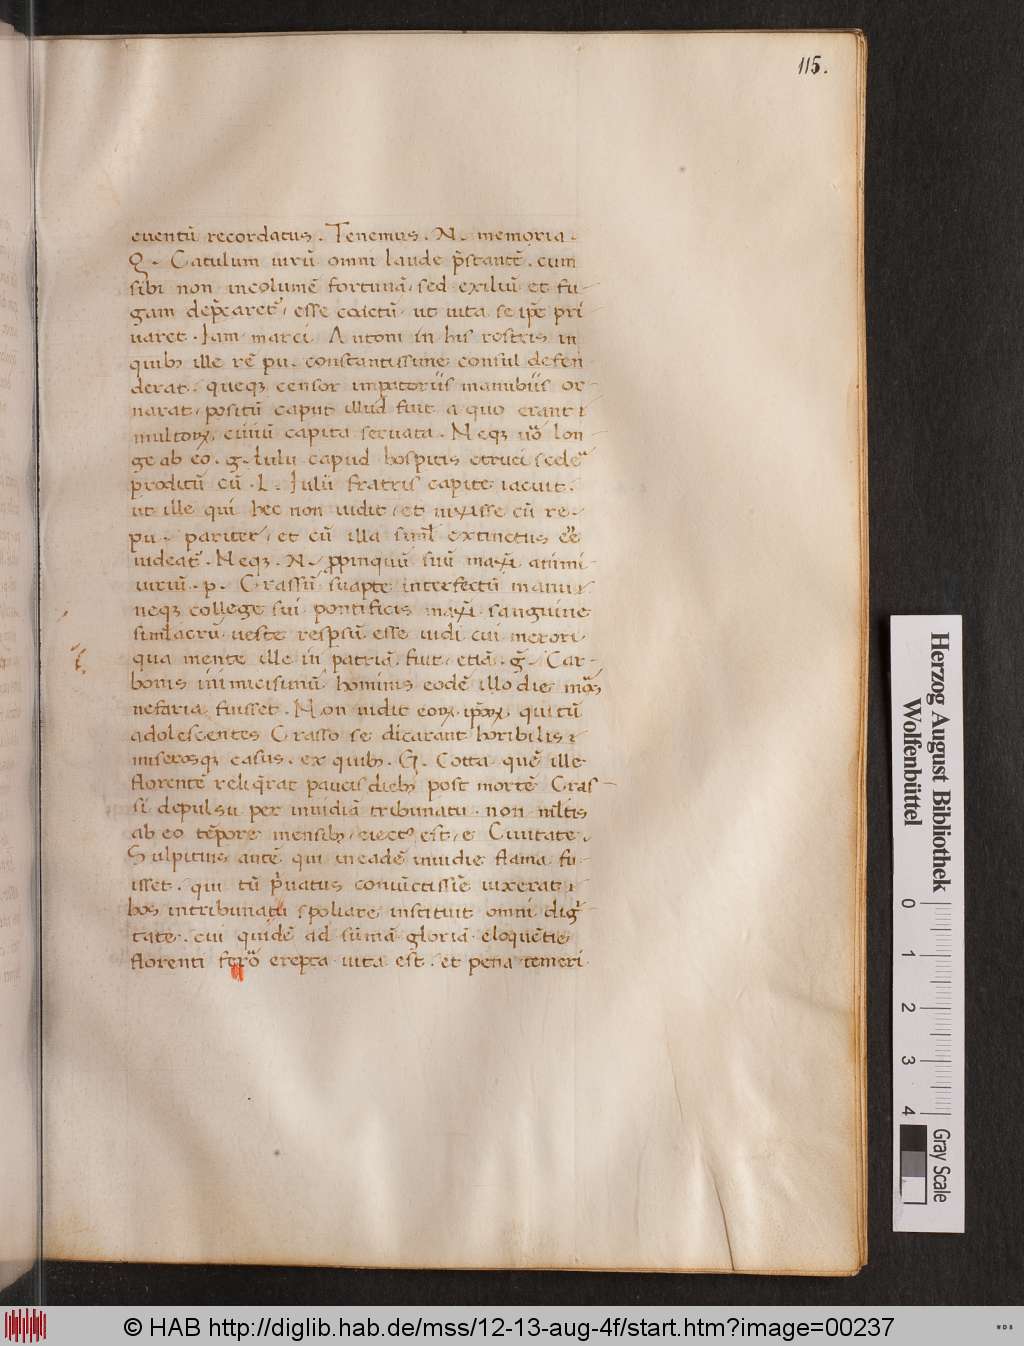 115.
euentū recordatus. Tenemus. N. memoria.
Q. Catulum uirū omni laude p̄stantē. cum
sibi non incolumē fortunā, sed exiliū et fu-
gam dep̄caret᾽, esse coactū, ut uita se ip̄e pri
uaret. Iam marci Antoni in his rostris in
quibȝ ille rē pu. constantissime consul defen
derat. queqȝ censor imperatoriis manubiis or-
narat, positū caput illud fuit a quo erant
multoꝝ, ciuiū capita seruata. Neqȝ uō lon-
ge ab eo. g. Iulii capud hospitis etrusci scele
proditū cū. L. Iulii fratris capite iacuit.
ut ille qui hec non uidit, et uixisse cū re-
pu. pariter, et cū illa siml̄ extinctus eē
uideat᾽. Neqȝ. N. ꝓpinquū suū maxi animi
uirū. p. Crassū suapte intrefectū manu
neqȝ college sui pontificis maxi sanguine
simlacrū ueste respsū esse uidi cui merori
qua mente ille in patriā fuit, etiā. g. Car-
bonis inimicisimū hominis eodē illo die mors
nefaria fuisset. Non uidit eoꝝ ipoꝝ, qui tū
adolescentes Crasso se dicarant horibilis
miserosqȝ casus. ex quibȝ. G. Cotta quē ille
florentē reliq̄rat paucis diebȝ post mortē Cras-
si depulsu per inuidiā tribunatu non mltis
ab eo tēpore mensibȝ, eiect᾽ est, e Ciuitate.
Sulpitius autē qui in eadē inuidie flama fu-
isset. qui tū p̄uatus coniūctissīe uixerat
hos in tribunatu spoliare instituit omni dig-
tate. cui quidē ad sūmā gloriā eloquētie
florenti ferō erepta uita est. et pena temeri
Herzog August Bibliothek
Wolfenbüttel
0 1 2 3 4
Gray Scale
© HAB http://diglib.hab.de/mss/12-13-aug-4f/start.htm?image=00237